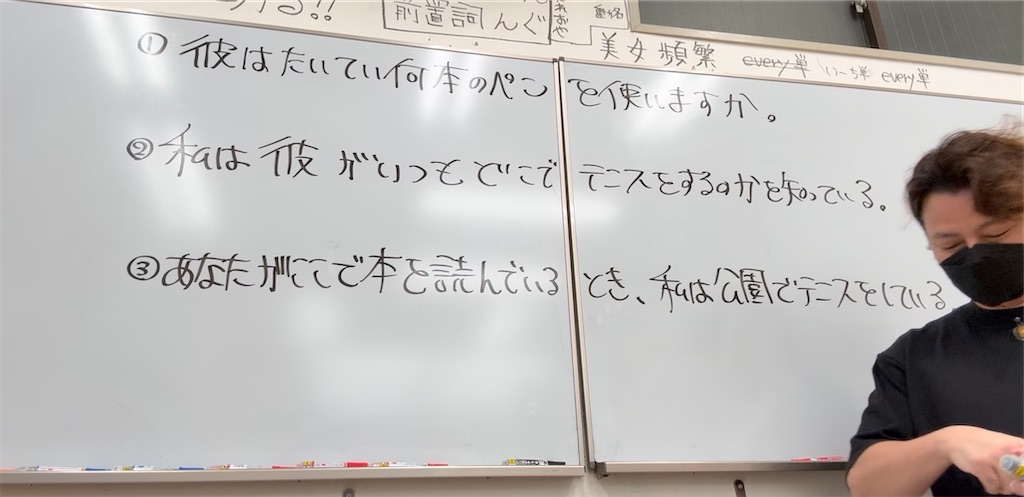 る!!
前置詞んぐ
美女頻繁 every単 い〜ち単 every単
① 彼はたいてい何本のペンを使いますか。
② 私は彼がいつもどこでテニスをするのかを知っている。
③ あなたがここで本を読んでいるとき、私は公園でテニスをしている